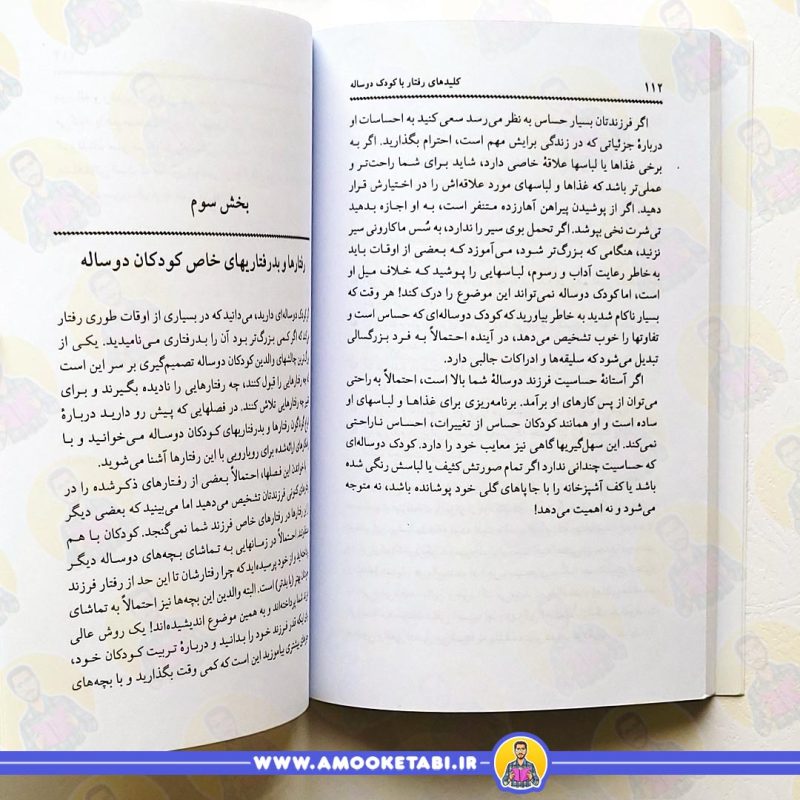 ۱۱۲
کلیدهای رفتار با کودک دوساله
اگر فرزندتان بسیار حساس به نظر می‌رسد سعی کنید به احساسات او
دربارهٔ جزئیاتی که در زندگی برایش مهم است، احترام بگذارید. اگر به
برخی غذاها یا لباسها علاقهٔ خاصی دارد، شاید برای شما راحت‌تر و
عملی‌تر باشد که غذاها و لباسهای مورد علاقه‌اش را در اختیارش قرار
دهید. اگر از پوشیدن پیراهن آهارزده متنفر است، به او اجازه بدهید
تی‌شرت نخی بپوشد. اگر تحمل بوی سیر را ندارد، به سُس ماکارونی سیر
نزنید، هنگامی که بزرگ‌تر شود، می‌آموزد که بعضی از اوقات باید
به خاطر رعایت آداب و رسوم، لباسهایی را پوشید که خلاف میل او
است، اما کودک دوساله نمی‌تواند این موضوع را درک کند! هر وقت که
بسیار ناکام شدید به خاطر بیاورید که کودک دوساله‌ای که حساس است و
تفاوتها را خوب تشخیص می‌دهد، در آینده احتمالاً به فرد بزرگسالی
تبدیل می‌شود که سلیقه‌ها و ادراکات جالبی دارد.
اگر آستانهٔ حساسیت فرزند دوسالهٔ شما بالا است، احتمالاً به راحتی
می‌توان از پس کارهای او برآمد. برنامه‌ریزی برای غذاها و لباسهای او
ساده است و او همانند کودکان حساس از تغییرات، احساس ناراحتی
نمی‌کند. این سهل‌گیریها گاهی نیز معایب خود را دارد. کودک دوساله‌ای
که حساسیت چندانی ندارد اگر تمام صورتش کثیف یا لباسش رنگی شده
باشد یا کف آشپزخانه را با جاپاهای گلی خود پوشانده باشد، نه متوجه
می‌شود و نه اهمیت می‌دهد!
بخش سوم
رفتارها و بدرفتاریهای خاص کودکان دوساله
کودک دوساله‌ای دارید، می‌دانید که در بسیاری از اوقات طوری رفتار
که اگر کمی بزرگ‌تر بود آن را بدرفتاری می‌نامیدید. یکی از
چالشهای والدین کودکان دوساله تصمیم‌گیری بر سر این است
که چه رفتارهایی را قبول کنند، چه رفتارهایی را نادیده بگیرند و برای
چه رفتارهایی تلاش کنند. در فصلهایی که پیش رو دارید دربارهٔ
رفتارها و بدرفتاریهای کودکان دوساله می‌خوانید و با
ارائه‌شده برای رویارویی با این رفتارها آشنا می‌شوید.
خواندن این فصلها، احتمالاً بعضی از رفتارهای ذکرشده را در
فرزندتان تشخیص می‌دهید اما می‌بینید که بعضی دیگر
رفتارها در رفتارهای خاص فرزند شما نمی‌گنجد. کودکان با هم
احتمالاً در زمانهایی به تماشای بچه‌های دوساله دیگر
و از خود پرسیده‌اید که چرا رفتارشان تا این حد از رفتار فرزند
بهتر (یا بدتر) است. البته والدین این بچه‌ها نیز احتمالاً به تماشای
پرداخته‌اند و به همین موضوع اندیشیده‌اند! یک روش عالی
اینکه قدر فرزند خود را بدانید و دربارهٔ تربیت کودکان خود،
بیشتری بیاموزید این است که کمی وقت بگذارید و با بچه‌های
WWW.AMOOKETABI.IR